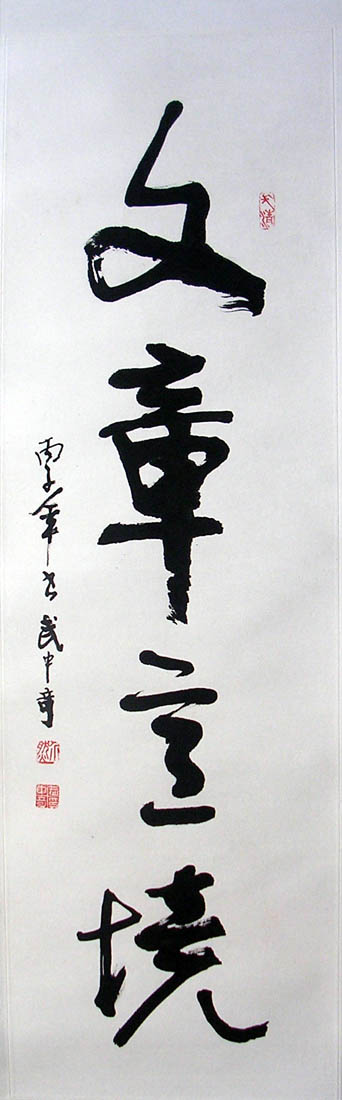 文章意境
丙子年书武中奇